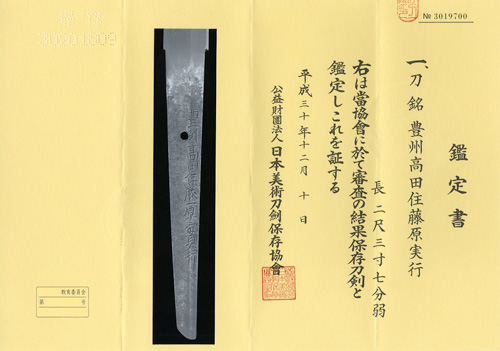 № 3019700
鑑定書
一、刀 銘 豊州高田住藤原実行
長 二尺三寸七分弱
右は當協會に於て審査の結果保存刀剣と
鑑定しこれを証する
平成三十年十二月 十 日
公益財團法人 日本美術刀劍保存協會
豊州高田住藤原実行
教育委員会
第 号